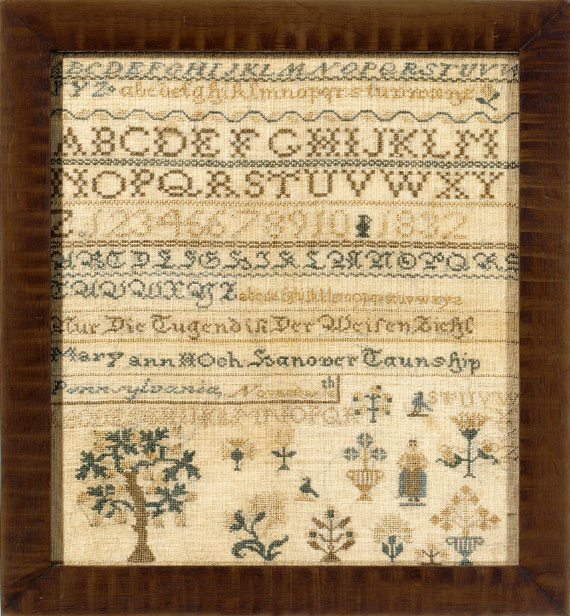 ABCDEFGHIJKLMNOPQRSTUVW
XYZ abcdefghiklmnopqrstuvwxyz
ABCDEFGHIJKLM
NOPQRSTUVWXY
Z 12345678910 1832
ABCDEFGHIJKLMNOPQRS
TUVWXYZ abcdefghiklmnopqrstuvwxyz
Nur Die Tugend ist Der Weisen Ziehl
Mary ann Hoch Hanover Taunship
Pennsylvania, November th